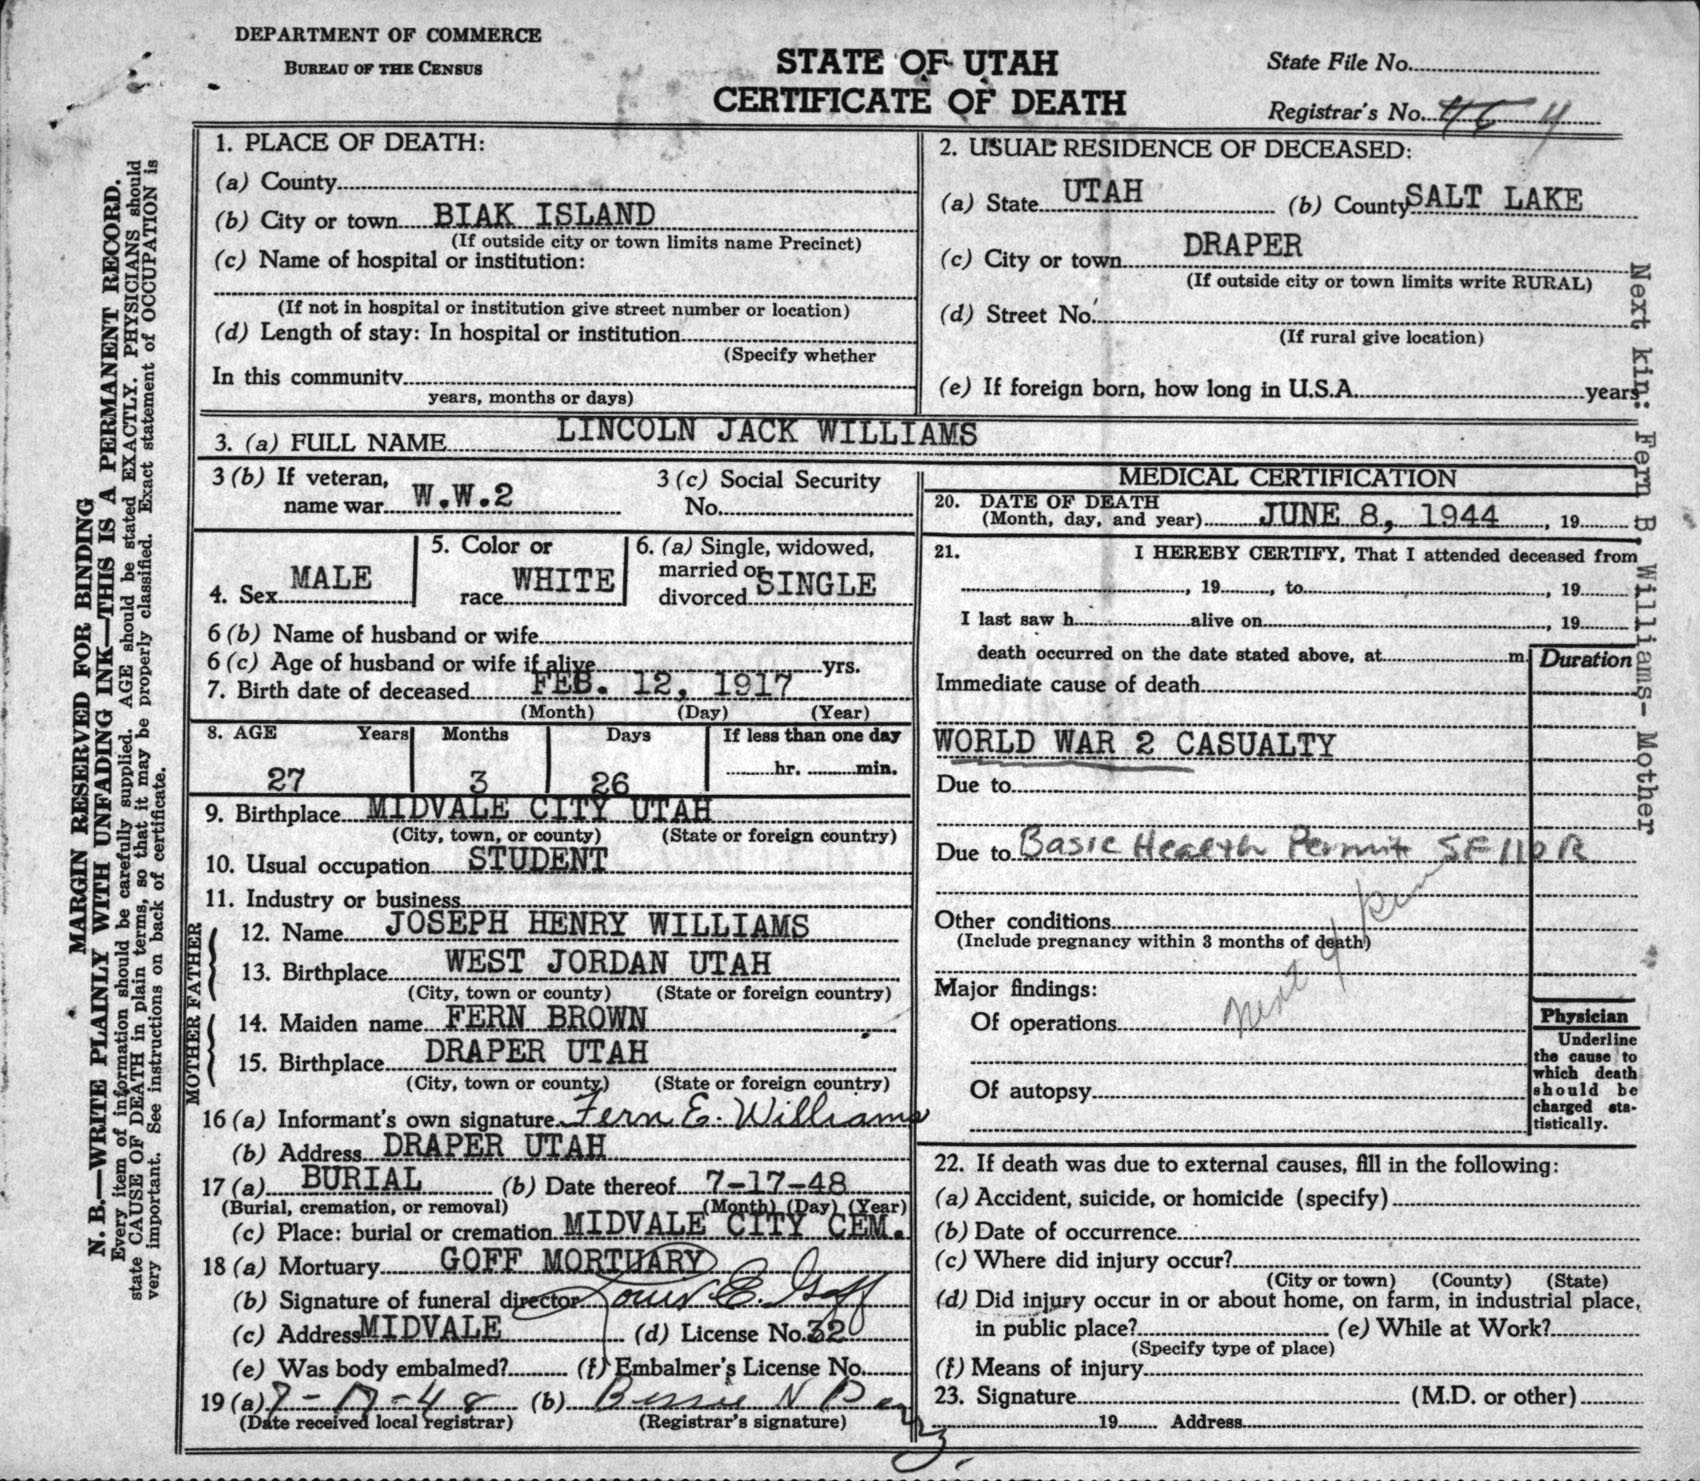 DEPARTMENT OF COMMERCE
BUREAU OF THE CENSUS
STATE OF UTAH
CERTIFICATE OF DEATH
State File No.
Registrar's No.
MARGIN RESERVED FOR BINDING
N. B.—WRITE PLAINLY WITH UNFADING INK—THIS IS A PERMANENT RECORD.
Every item of information should be carefully supplied. AGE should be stated EXACTLY. PHYSICIANS should
state CAUSE OF DEATH in plain terms, so that it may be properly classified. Exact statement of OCCUPATION is
very important. See instructions on back of certificate.
1. PLACE OF DEATH:
(a) County
(b) City or town BIAK ISLAND
(If outside city or town limits name Precinct)
(c) Name of hospital or institution:
(If not in hospital or institution give street number or location)
(d) Length of stay: In hospital or institution
(Specify whether
In this community
years, months or days)
2. USUAL RESIDENCE OF DECEASED:
(a) State UTAH (b) County SALT LAKE
(c) City or town DRAPER
(If outside city or town limits write RURAL)
(d) Street No.
(If rural give location)
(e) If foreign born, how long in U.S.A. years
3. (a) FULL NAME LINCOLN JACK WILLIAMS
3 (b) If veteran,
name war W.W.2
3 (c) Social Security
No.
4. Sex MALE
5. Color or
race WHITE
6. (a) Single, widowed,
married or
divorced SINGLE
6 (b) Name of husband or wife
6 (c) Age of husband or wife if alive yrs.
7. Birth date of deceased FEB. 12, 1917
(Month) (Day) (Year)
8. AGE Years Months Days If less than one day
27 3 26 hr. min.
9. Birthplace MIDVALE CITY UTAH
(City, town, or county) (State or foreign country)
10. Usual occupation STUDENT
11. Industry or business
FATHER
12. Name JOSEPH HENRY WILLIAMS
13. Birthplace WEST JORDAN UTAH
(City, town or county) (State or foreign country)
MOTHER
14. Maiden name FERN BROWN
15. Birthplace DRAPER UTAH
(City, town or county) (State or foreign country)
16 (a) Informant's own signature Fern E. Williams
(b) Address DRAPER UTAH
17 (a) BURIAL (b) Date thereof 7-17-48
(Burial, cremation, or removal) (Month) (Day) (Year)
(c) Place: burial or cremation MIDVALE CITY CEM.
18 (a) Mortuary GOFF MORTUARY
(b) Signature of funeral director Louis E. Goff
(c) Address MIDVALE (d) License No. 32
(e) Was body embalmed? (f) Embalmer's License No.
19 (a) 7-17-48 (b) Bessie N
(Date received local registrar) (Registrar's signature)
MEDICAL CERTIFICATION
20. DATE OF DEATH
(Month, day, and year) JUNE 8, 1944, 19
21. I HEREBY CERTIFY, That I attended deceased from
, 19 , to , 19
I last saw h alive on , 19
death occurred on the date stated above, at m.
Duration
Immediate cause of death
WORLD WAR 2 CASUALTY
Due to
Due to Basic Health Permit SF 110 R
Other conditions
(Include pregnancy within 3 months of death)
Next of kin
Major findings:
Of operations
Of autopsy
Physician
Underline
the cause to
which death
should be
charged sta-
tistically.
22. If death was due to external causes, fill in the following:
(a) Accident, suicide, or homicide (specify)
(b) Date of occurrence
(c) Where did injury occur?
(City or town) (County) (State)
(d) Did injury occur in or about home, on farm, in industrial place,
in public place? (e) While at Work?
(Specify type of place)
(f) Means of injury
23. Signature (M.D. or other)
19 Address
Next kin: Fern B. Williams- Mother